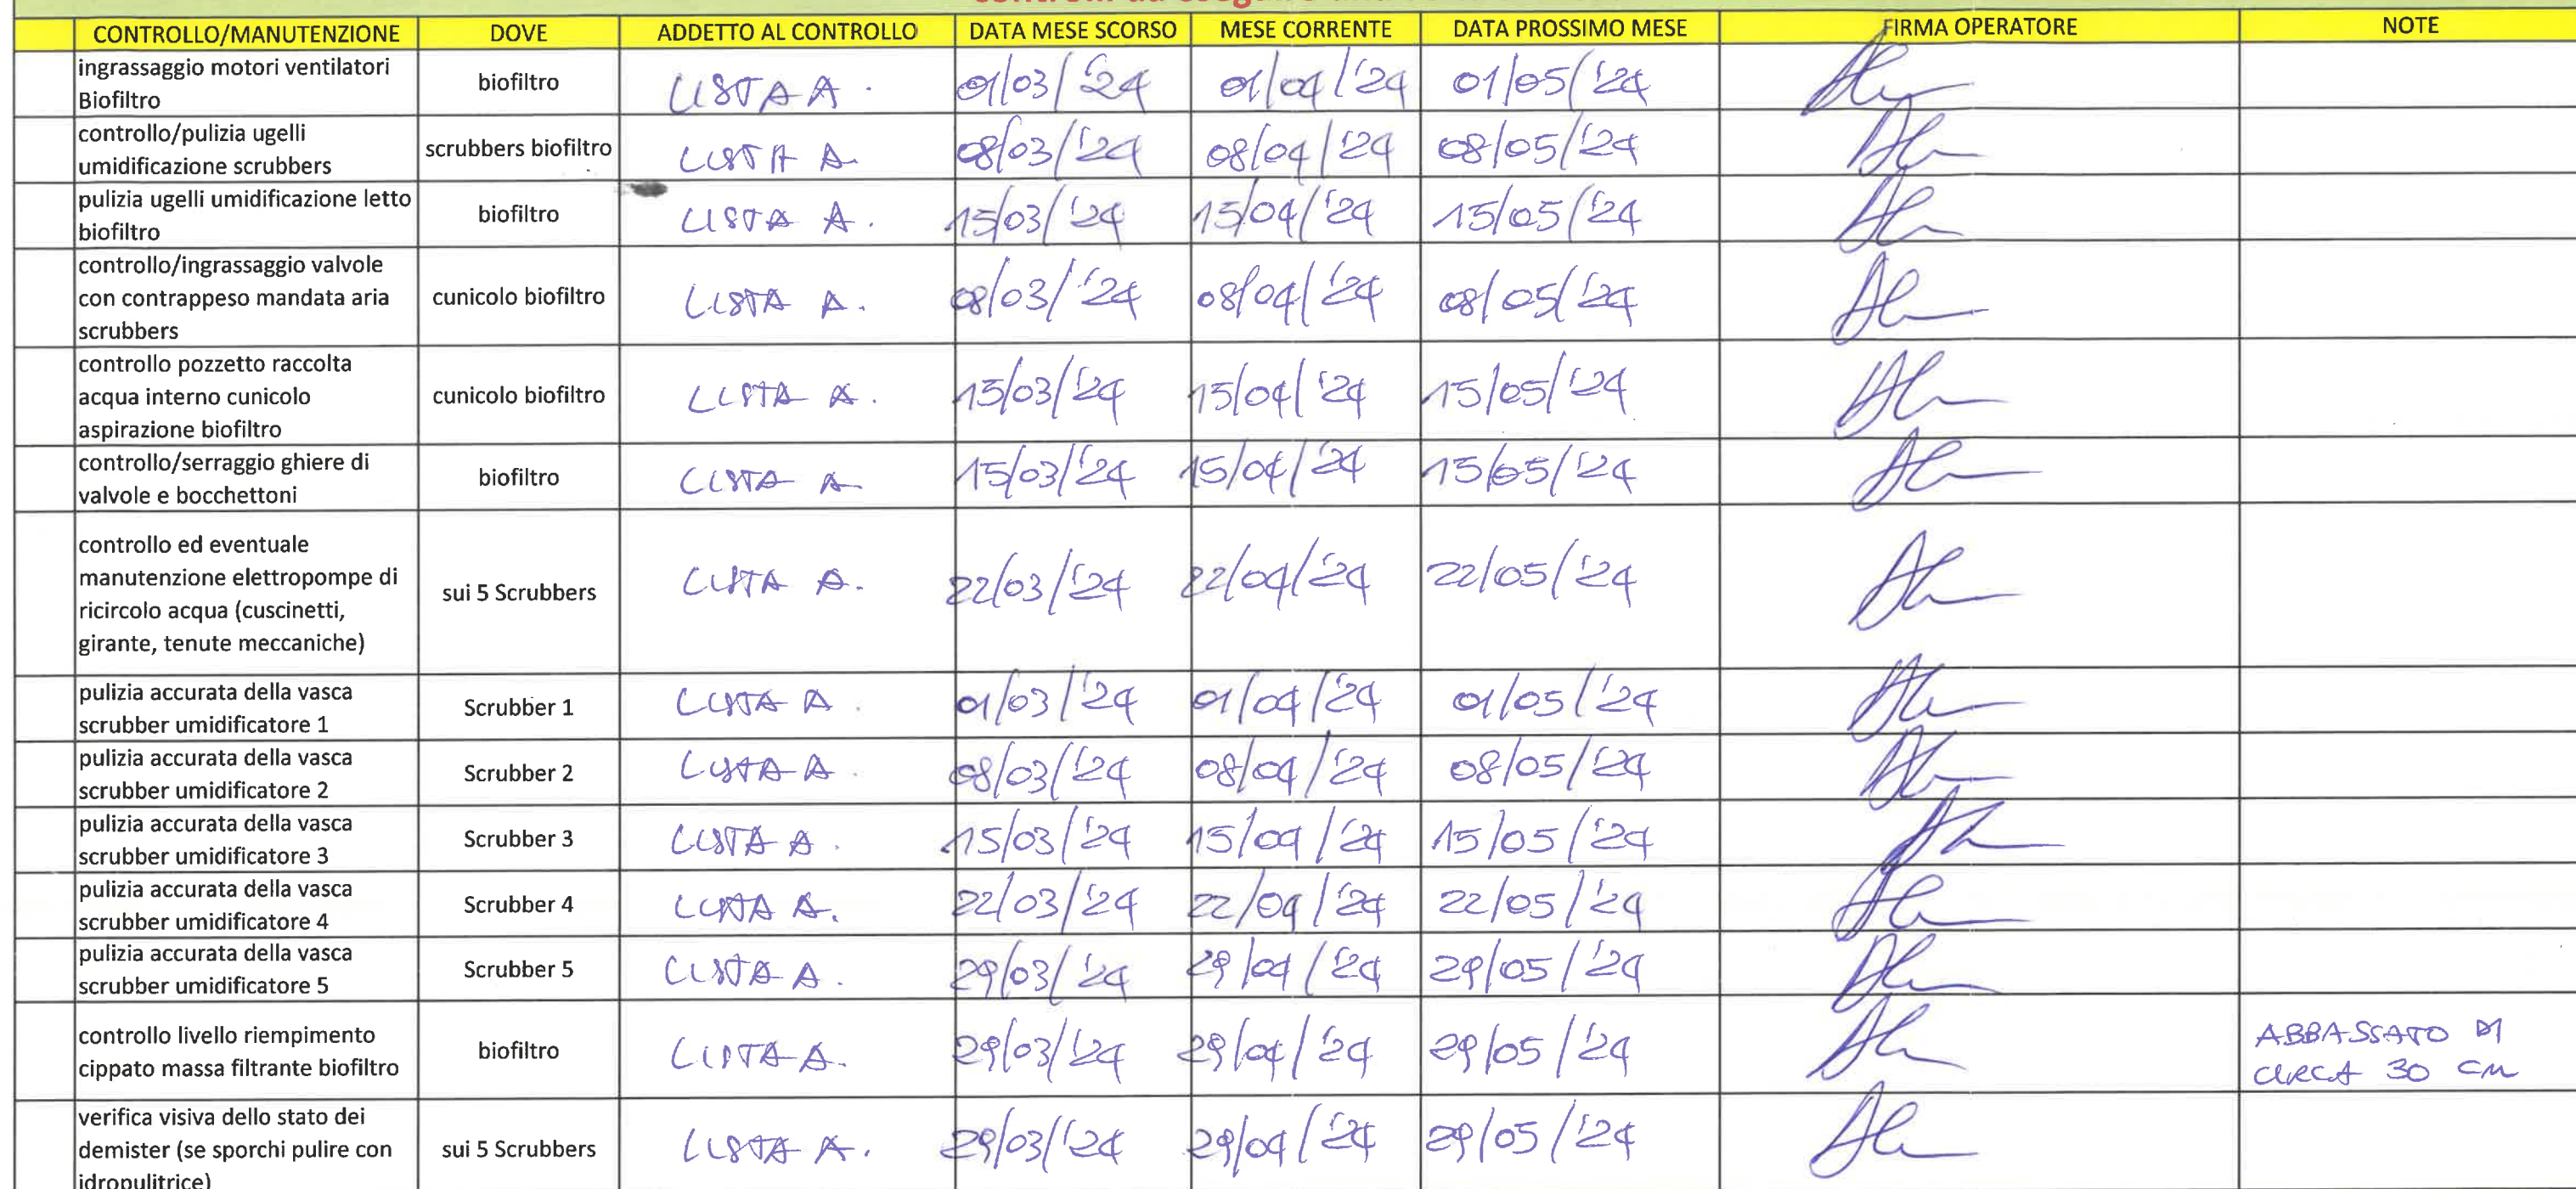 CONTROLLO/MANUTENZIONE DOVE ADDETTO AL CONTROLLO DATA MESE SCORSO MESE CORRENTE DATA PROSSIMO MESE FIRMA OPERATORE NOTE
ingrassaggio motori ventilatori
Biofiltro
biofiltro LISTA A. 01/03/'24 01/04/'24 01/05/'24
controllo/pulizia ugelli
umidificazione scrubbers
scrubbers biofiltro LISTA A. 08/03/'24 08/04/'24 08/05/'24
pulizia ugelli umidificazione letto
biofiltro
biofiltro LISTA A. 15/03/'24 15/04/'24 15/05/'24
controllo/ingrassaggio valvole
con contrappeso mandata aria
scrubbers
cunicolo biofiltro LISTA A. 08/03/'24 08/04/'24 08/05/'24
controllo pozzetto raccolta
acqua interno cunicolo
aspirazione biofiltro
cunicolo biofiltro LISTA A. 15/03/'24 15/04/'24 15/05/'24
controllo/serraggio ghiere di
valvole e bocchettoni
biofiltro LISTA A. 15/03/'24 15/04/'24 15/05/'24
controllo ed eventuale
manutenzione elettropompe di
ricircolo acqua (cuscinetti,
girante, tenute meccaniche)
sui 5 Scrubbers LISTA A. 22/03/'24 22/04/'24 22/05/'24
pulizia accurata della vasca
scrubber umidificatore 1
Scrubber 1 LISTA A. 01/03/'24 01/04/'24 01/05/'24
pulizia accurata della vasca
scrubber umidificatore 2
Scrubber 2 LISTA A. 08/03/'24 08/04/'24 08/05/'24
pulizia accurata della vasca
scrubber umidificatore 3
Scrubber 3 LISTA A. 15/03/'24 15/04/'24 15/05/'24
pulizia accurata della vasca
scrubber umidificatore 4
Scrubber 4 LISTA A. 22/03/'24 22/04/'24 22/05/'24
pulizia accurata della vasca
scrubber umidificatore 5
Scrubber 5 LISTA A. 29/03/'24 29/04/'24 29/05/'24
controllo livello riempimento
cippato massa filtrante biofiltro
biofiltro LISTA A. 29/03/'24 29/04/'24 29/05/'24
ABBASSATO DI
CIRCA 30 CM
verifica visiva dello stato dei
demister (se sporchi pulire con
idropulitrice)
sui 5 Scrubbers LISTA A. 29/03/'24 29/04/'24 29/05/'24